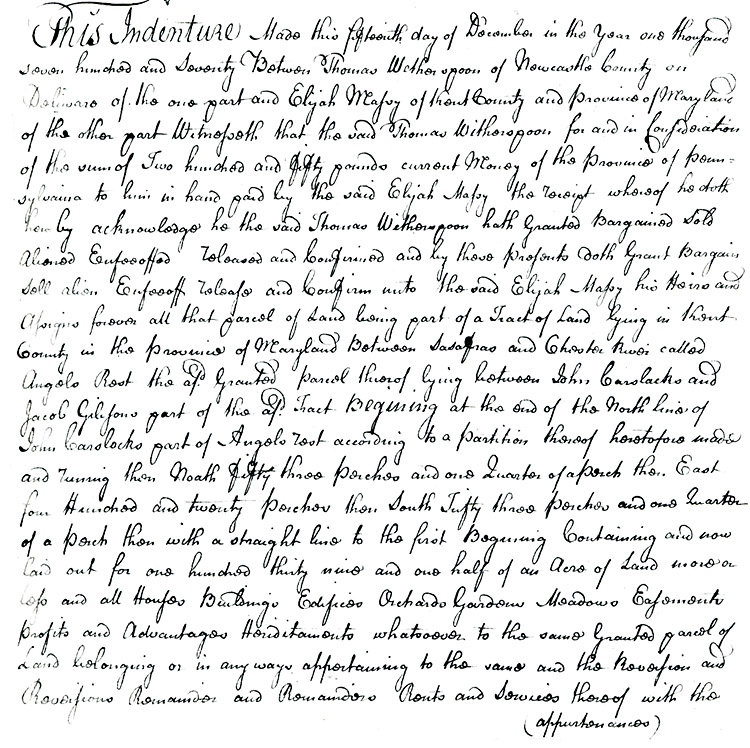 This Indenture Made this fifteenth day of December in the Year one thousand
seven hundred and Seventy Between Thomas Witherspoon of Newcastle County on
Deliware of the one part and Elijah Massy of Kent County and Province of Maryland
of the other part Witnesseth that the said Thomas Witherspoon for and in Consideration
of the sum of Two hundred and fifty pounds current Money of the Province of Penn=
sylvaina to him in hand paid by the said Elijah Massy the receipt whereof he doth
hereby acknowledge he the said Thomas Witherspoon hath Granted Bargained Sold
Aliened Enfeeoffed released and Confirmed and by these presents doth Grant Bargain
Sell alien Enfeeoff release and Confirm unto the said Elijah Massy his Heirs and
Assigns forever all that parcel of Land being part of a Tract of Land lying in Kent
County in the Province of Maryland Between Sasafras and Chester River called
Angels Rest the afs.d Granted parcel thereof lying between John Carslacks and
Jacob Gilisons part of the afs.d Tract Begining at the end of the North line of
John Carslocks part of Angels rest according to a partition thereof heretofore made
and runing then Noath fifty three perches and one Quarter of a perch then East
four Hundred and twenty perches then South Fifty three perches and one Quarter
of a perch then with a straight line to the first Begining Containing and now
laid out for one hundred thirty nine and one half of an Acre of Land more or
less and all Houses Buildings Edifices Orchards Gardens Meadows Easements
profits and Advantages Heriditaments whatsoever to the same Granted parcel of
Land belonging or in any ways appertaining to the same and the Reversion and
Reversions Remainder and Remainders Rents and Services thereof with the
(appurtenances)